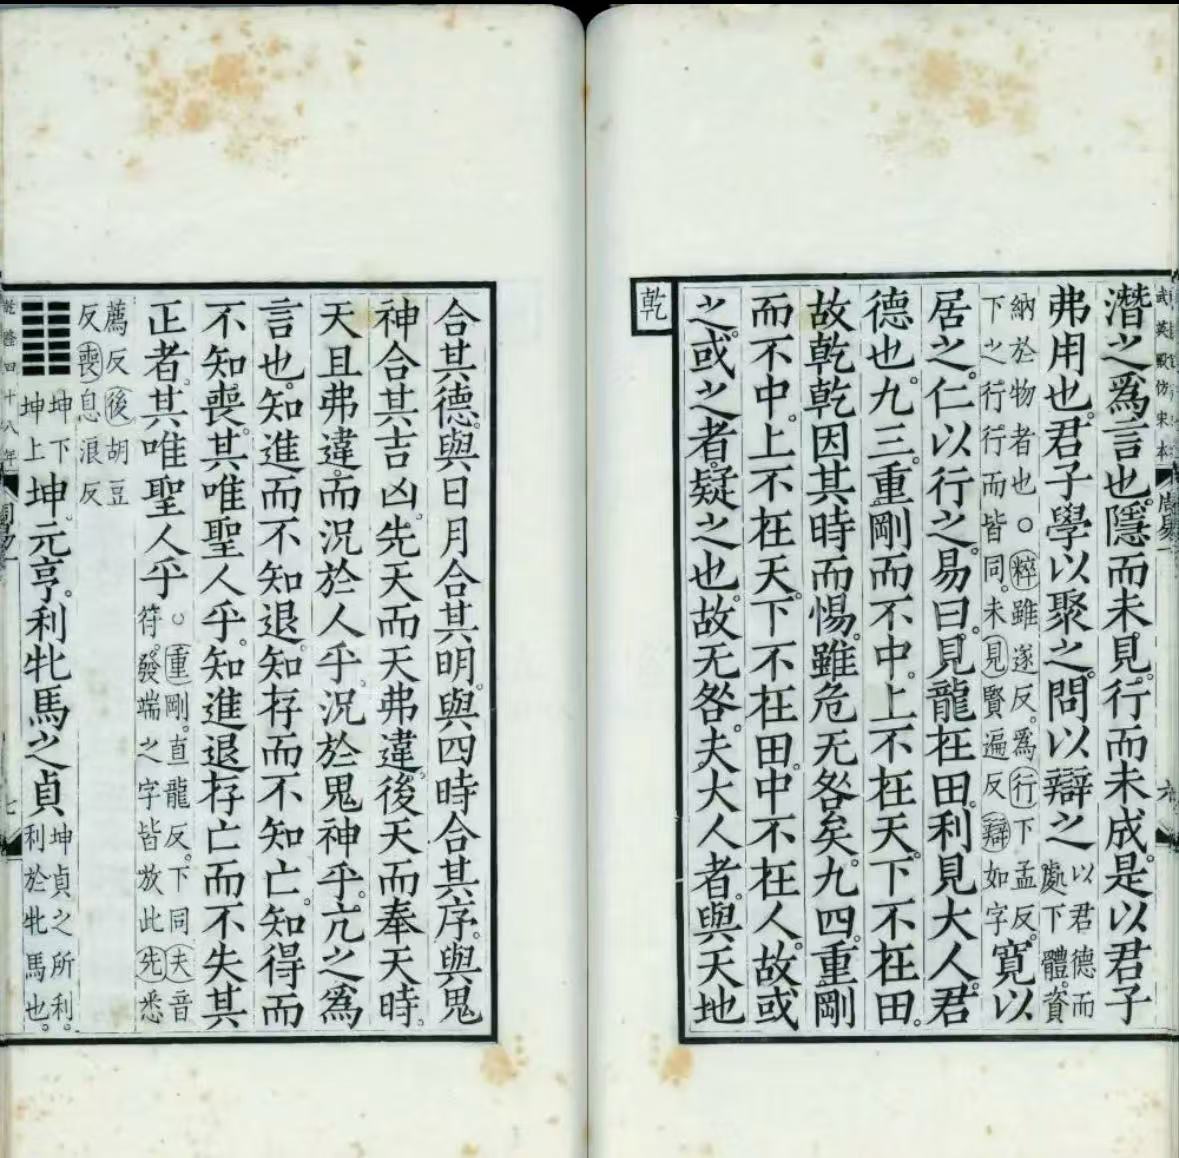 潛之爲言也隱而未見行而未成是以君子
弗用也君子學以聚之問以辯之以君德而處下體資
納於物者也○粹雖遂反爲行下孟反下之行行而皆同未見賢遍反辯如字寬以
居之仁以行之易曰見龍在田利見大人君
德也九三重剛而不中上不在天下不在田
故乾乾因其時而惕雖危无咎矣九四重剛
而不中上不在天下不在田中不在人故或
之或之者疑之也故无咎夫大人者與天地
乾
合其德與日月合其明與四時合其序與鬼
神合其吉凶先天而天弗違後天而奉天時
天且弗違而況於人乎況於鬼神乎亢之爲
言也知進而不知退知存而不知亡知得而
不知喪其唯聖人乎知進退存亡而不失其
正者其唯聖人乎○重剛直龍反下同夫音符發端之字皆放此先悉
薦反後胡豆反喪息浪反
坤下坤上坤元亨利牝馬之貞坤貞之所利利於牝馬也
武英殿仿宋本
周易一
六
乾隆四十八年
周易一
七